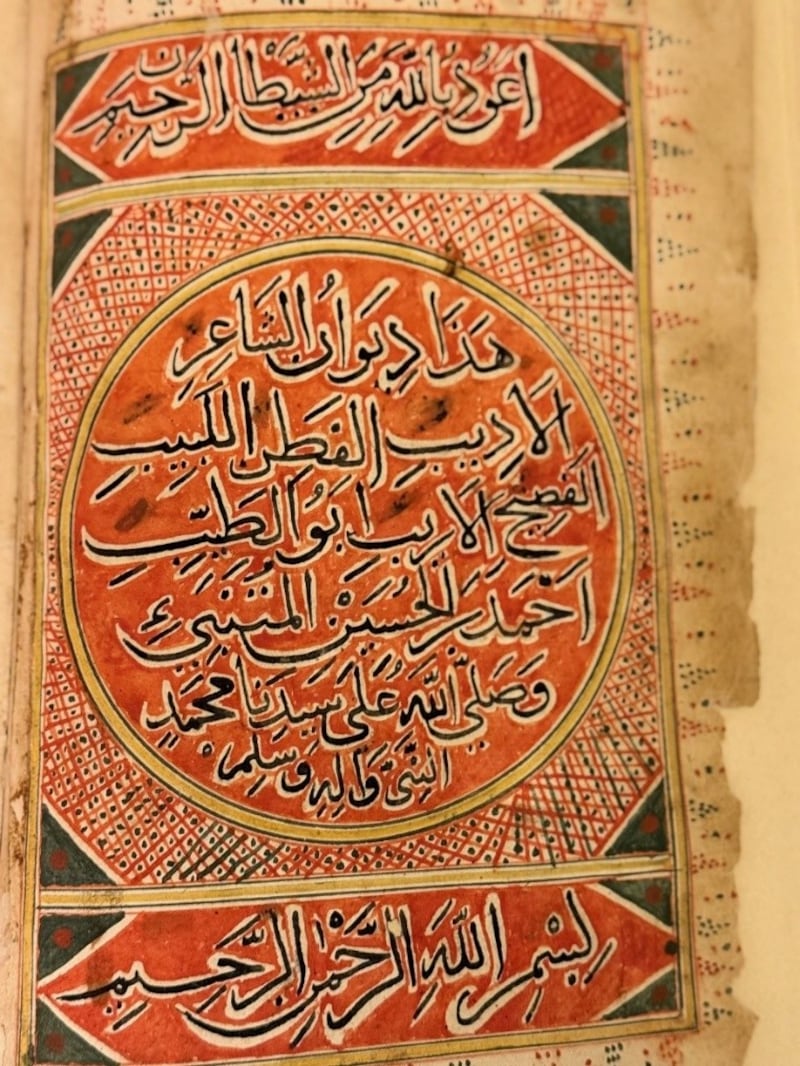 اَعُوذُ بِاللَّهِ مِنَ الشَّيْطَانِ الرَّجِيمِ
هَذَا دِيوَانُ الشَّاعِرِ
الاَدِيبِ الفَطِنِ اللَّبِيبِ
الفَصِيحِ الاَرِيبِ ابَوُ الطَيِّبِ
اَحْمَد بن الحُسَيْنِ المُتَنَبِيءِ
وَصَلَّى اللَّه عَلَى سَيِّدِنَا مُحَمَّدٍ
النَّبِيِّ وَآلِهِ وَسَلِّمْ
بِسْمِ اللَّهِ الرَّحْمٰنِ الرَّحِيمِ